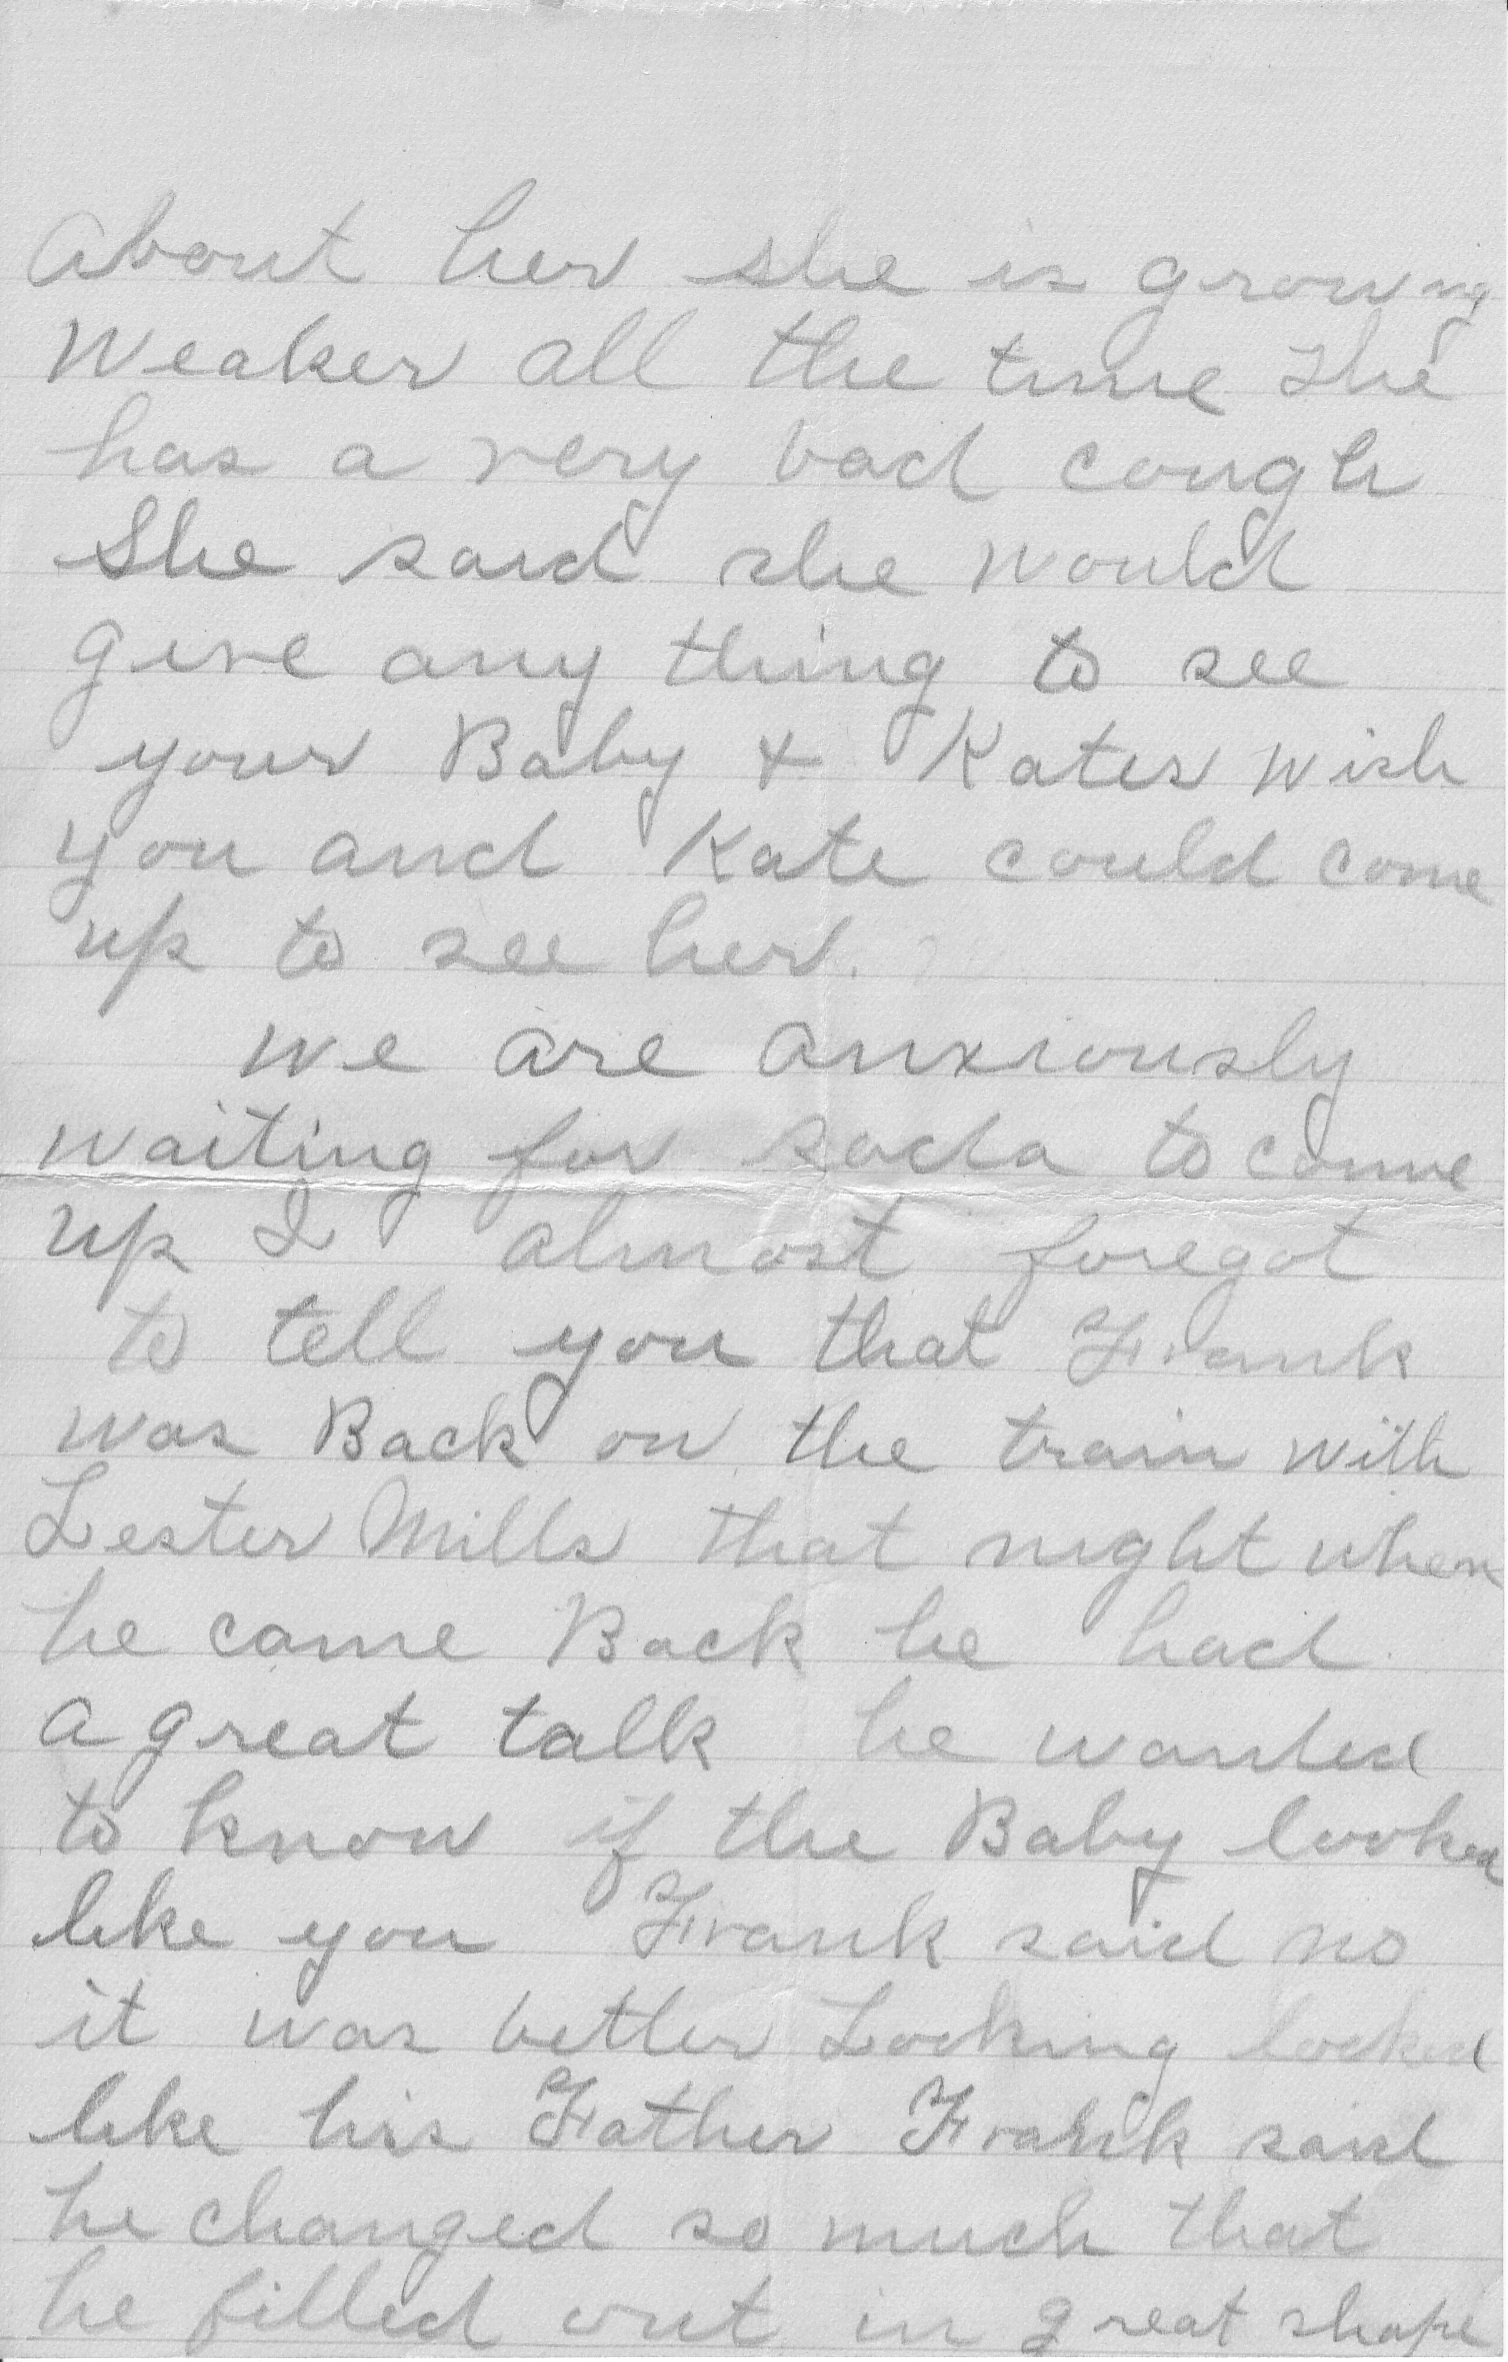 About her she is growing
weaker all the time she
has a very bad cough
She said she would
give any thing to see
your Baby + Kates wish
you and Kate could come
up to see her.
we are anxiously
waiting for sada to come
up I almost foregot
to tell you that Frank
was Back on the train with
Lester Mills that night when
he came Back he had
a great talk he wanted
to know if the Baby looked
like you Frank said no
it was better Looking looked
like his Father Frank said
he changed so much that
he filled out in great shape